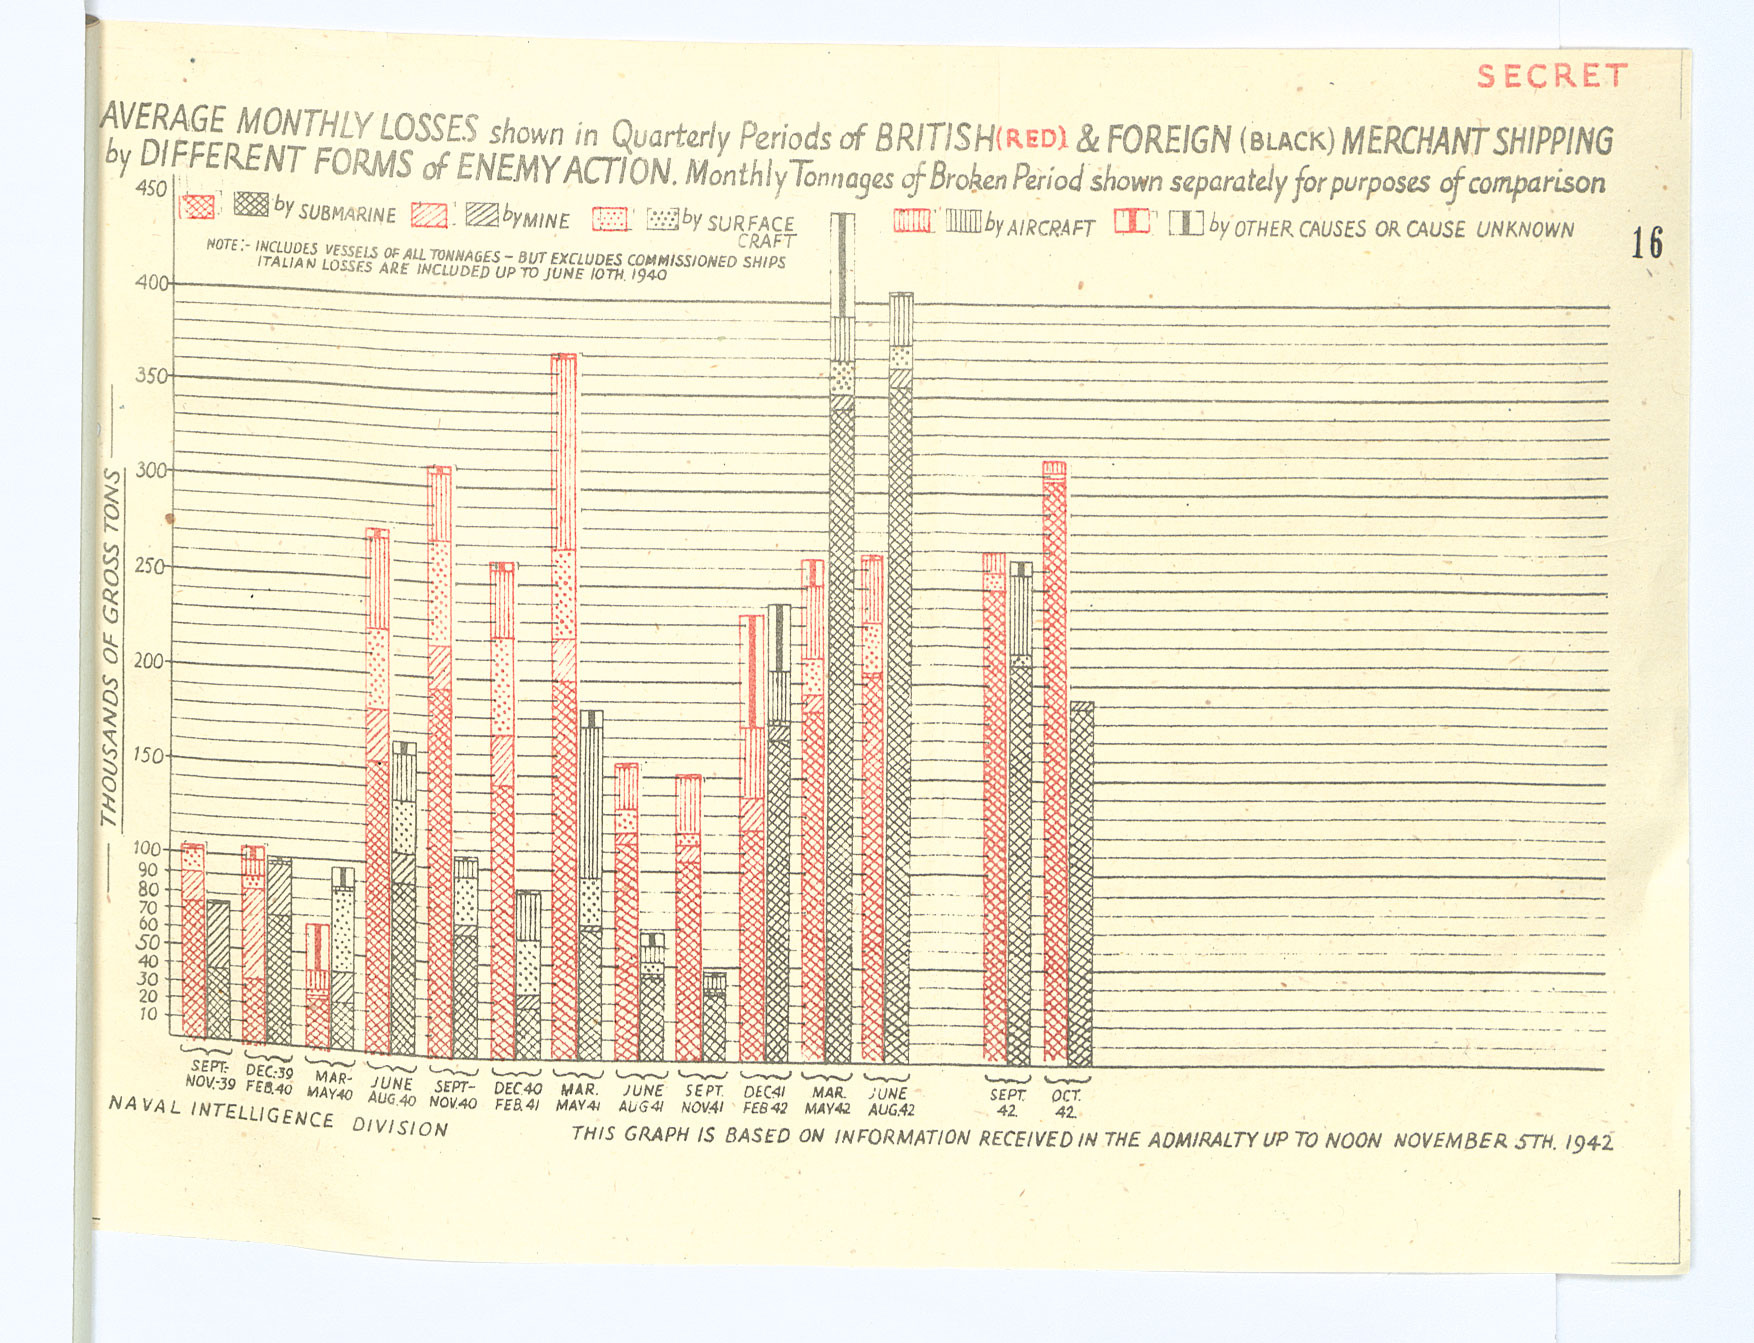 SECRET
AVERAGE MONTHLY LOSSES shown in Quarterly Periods of BRITISH (RED) & FOREIGN (BLACK) MERCHANT SHIPPING
by DIFFERENT FORMS of ENEMY ACTION. Monthly Tonnages of Broken Period shown separately for purposes of comparison
by SUBMARINE by MINE by SURFACE CRAFT by AIRCRAFT by OTHER CAUSES OR CAUSE UNKNOWN
16
NOTE:- INCLUDES VESSELS OF ALL TONNAGES - BUT EXCLUDES COMMISSIONED SHIPS
ITALIAN LOSSES ARE INCLUDED UP TO JUNE 10TH. 1940
THOUSANDS OF GROSS TONS
450
400
350
300
250
200
150
100
90
80
70
60
50
40
30
20
10
SEPT:- NOV:-39
DEC:-39 FEB.40
MAR- MAY40
JUNE AUG.40
SEPT- NOV.40
DEC.40 FEB.41
MAR. MAY41
JUNE AUG41
SEPT. NOV.41
DEC41 FEB 42
MAR. MAY42
JUNE AUG.42
SEPT. 42.
OCT. 42.
NAVAL INTELLIGENCE DIVISION
THIS GRAPH IS BASED ON INFORMATION RECEIVED IN THE ADMIRALTY UP TO NOON NOVEMBER 5TH. 1942